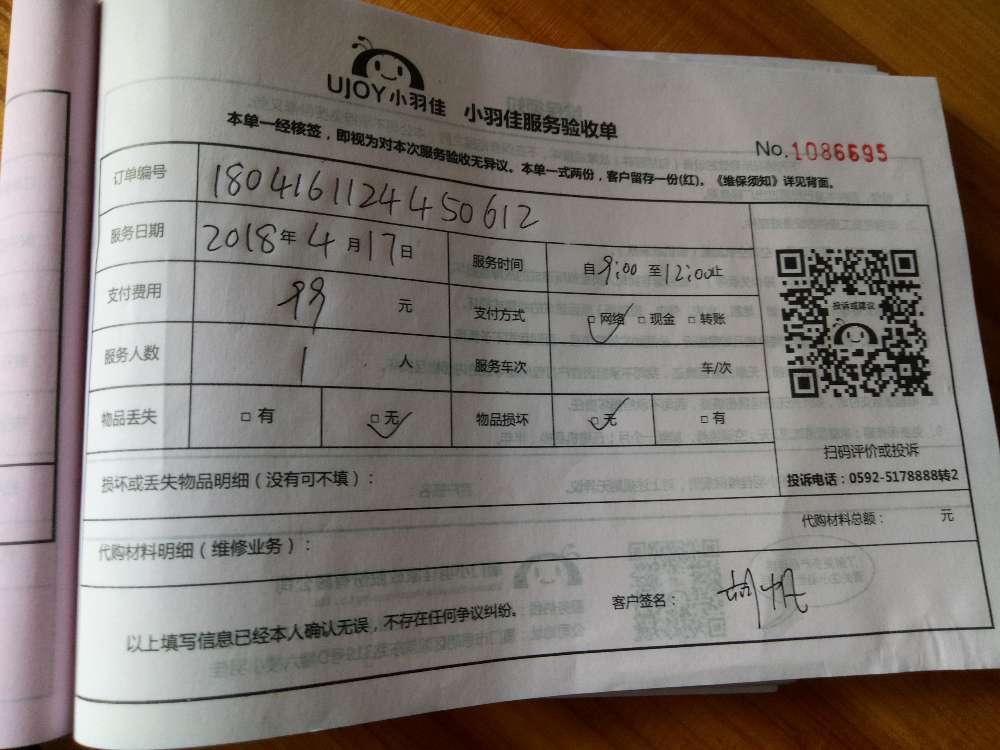 UJOY小羽佳 小羽佳服务验收单
本单一经核签，即视为对本次服务验收无异议。本单一式两份，客户留存一份(红)。《维保须知》详见背面。
No.1086695
订单编号 1804161124450612
服务日期 2018年4月17日 服务时间 自9:00至12:00止
支付费用 99 元 支付方式 □网络 □现金 □转账
服务人数 1 人 服务车次 车/次
物品丢失 □有 □无 物品损坏 □无 □有
投诉或建议
扫码评价或投诉
投诉电话：0592-5178888转2
损坏或丢失物品明细（没有可不填）：
代购材料明细（维修业务）： 代购材料总额： 元
以上填写信息已经本人确认无误，不存在任何争议纠纷。 客户签名：胡帆